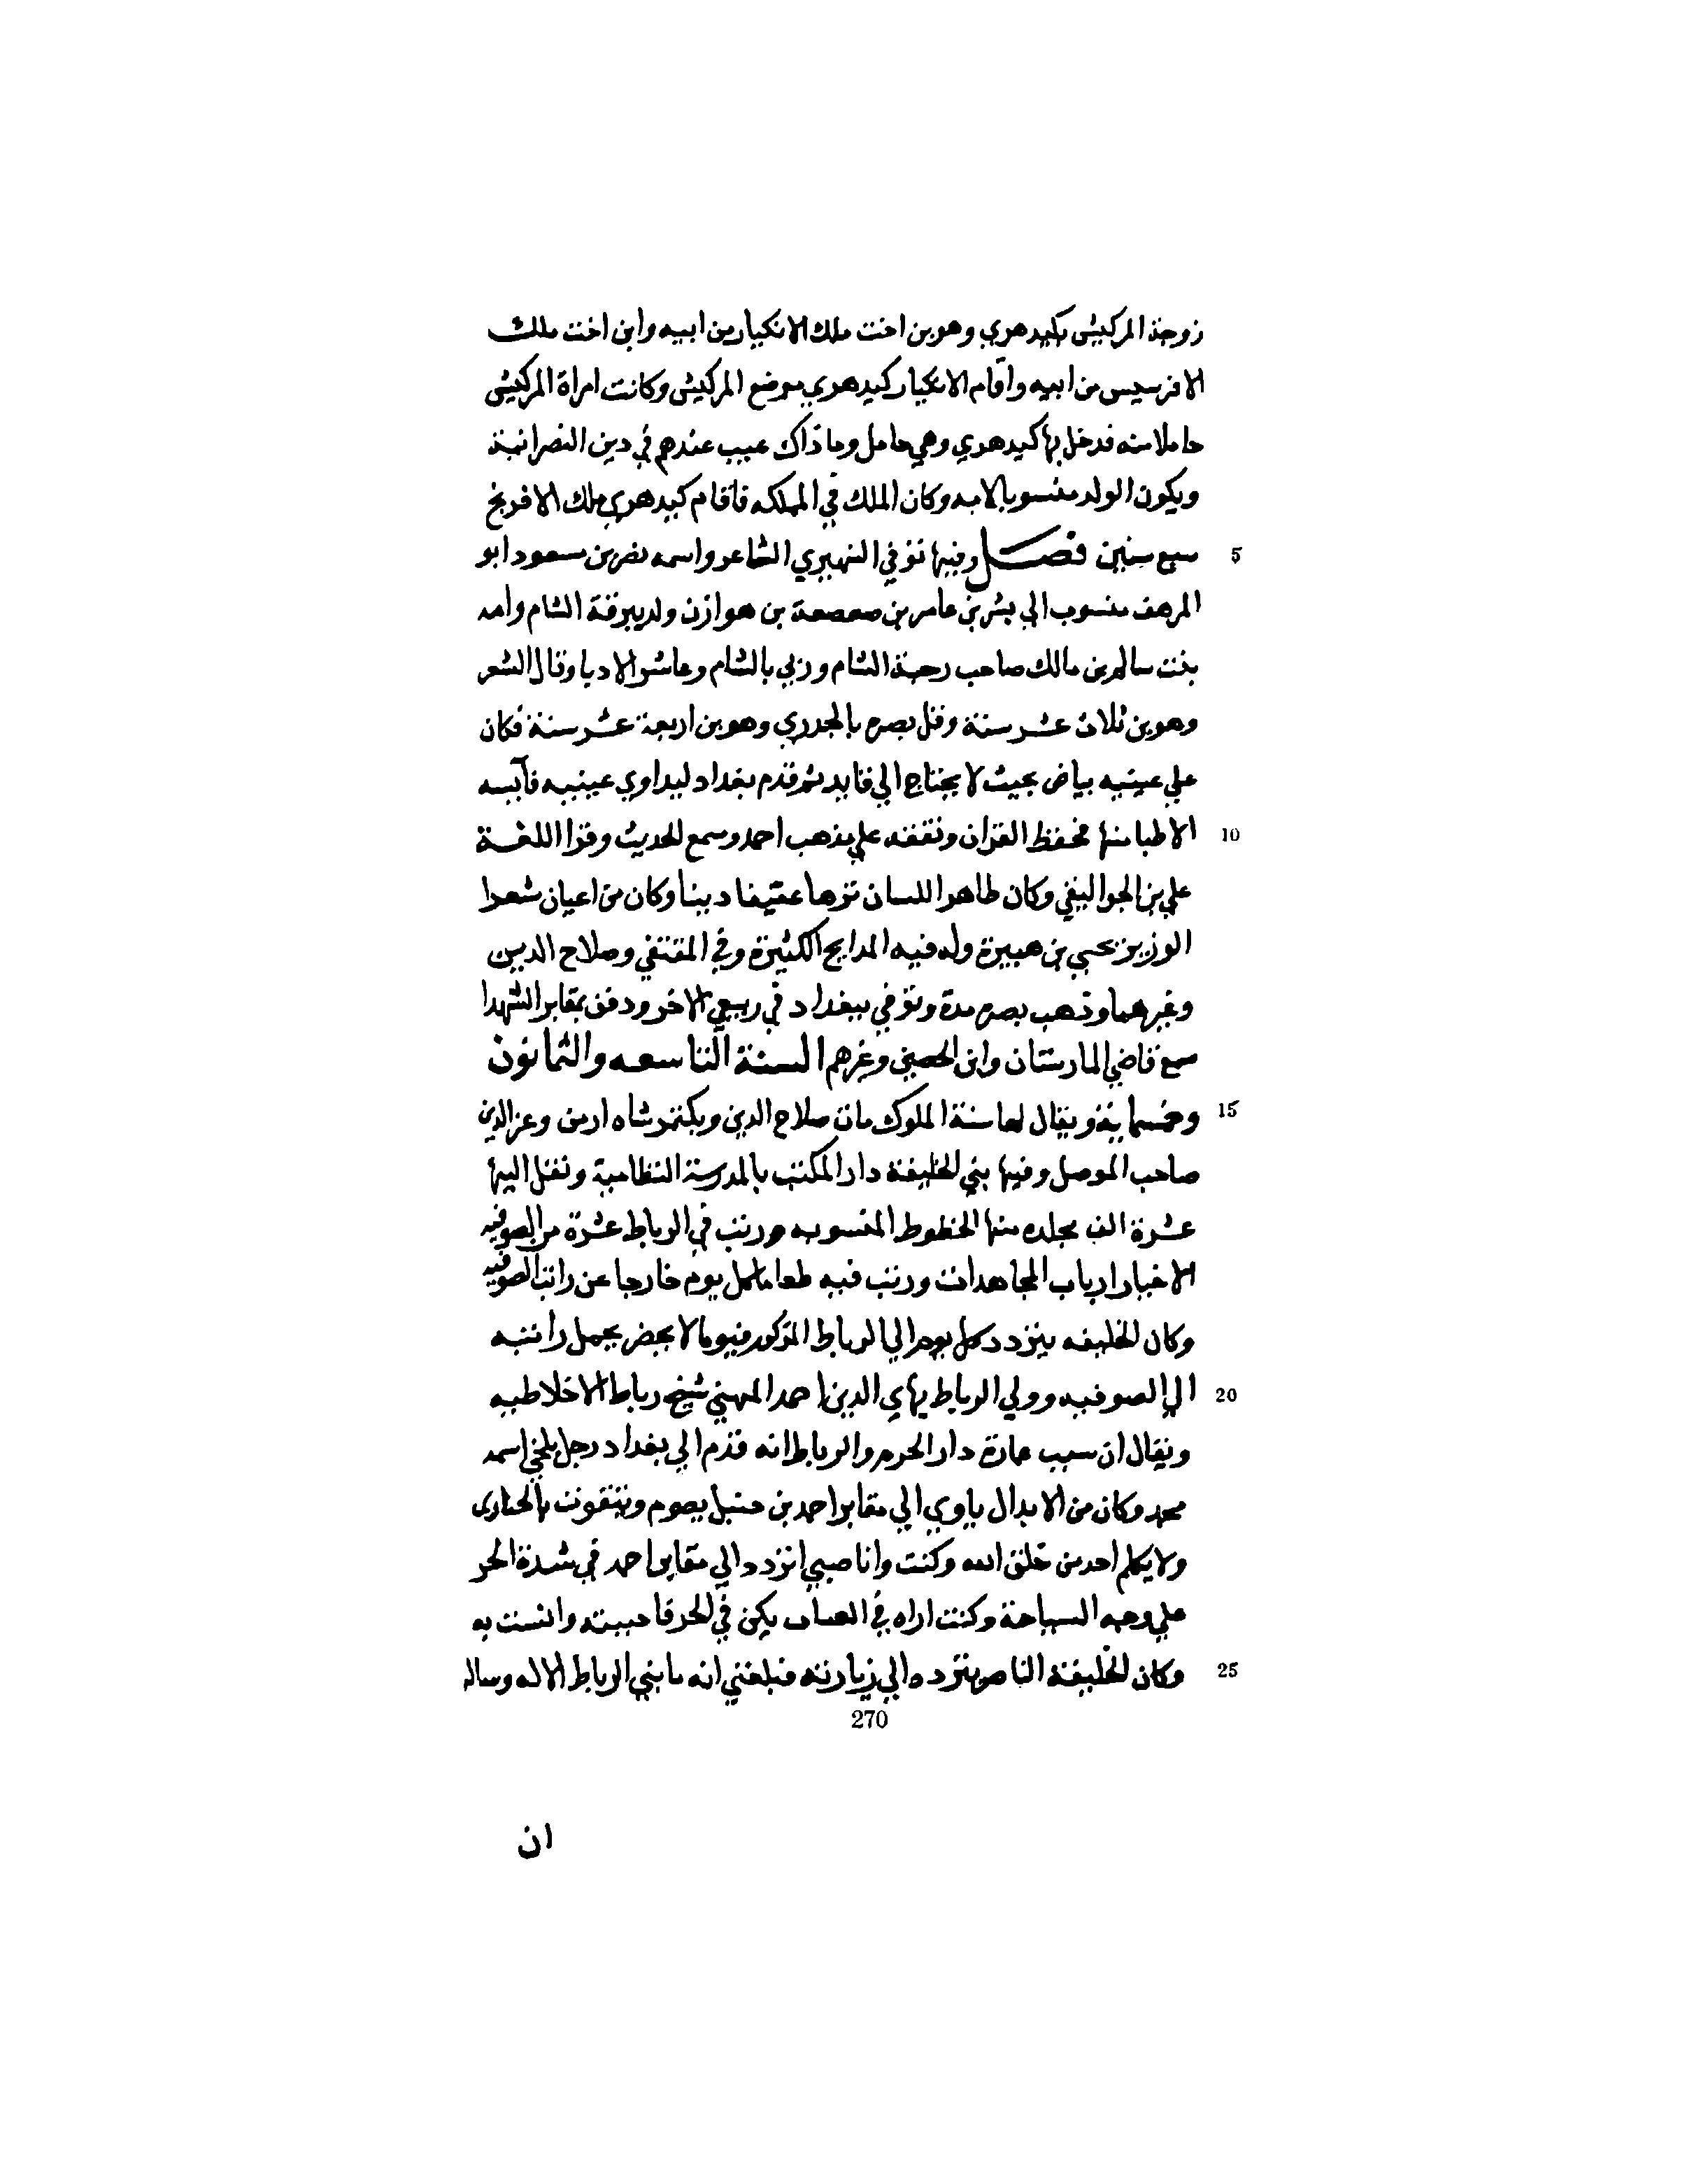 زوجة المركيس كيدهري وهو بن اخت ملك الانكيار من ابيه وابن اخت ملك
الافرسيس من ابيه واقام الانكيار كيدهري موضع المركيش وكانت امراة المركيش
حاملا منه فدخل بها كيدهري وهي حامل وما ذاك عيب عندهم في دين النصرانية
ويكون الولد منسوبا لامه وكان الملك في المملكه فاقام كيدهري ملك الافرنج
5 سبع سنين فصل وفيها توفي النميري الشاعر واسمه نصر بن مسعود ابو
المرهف منسوب الي بشر بن عامر بن صعصعة بن هوازن ولد ببرقة الشام وامه
بنت سالم بن مالك صاحب رحبة الشام وربي بالشام وعاشر الادبا وقال الشعر
وهو بن ثلاث عشر سنة وقل بصره بالجدري وهو بن اربعة عشر سنة فكان
علي عينيه بياض بحيث لا يحتاج الي قايد ثم قدم بغداد ليداوي عينيه فآيسه
10 الاطبا منها فحفظ القران وتفقه علي مذهب احمد وسمع الحديث وقرا اللغة
علي بن الجواليقي وكان طاهر اللسان نزها عفيفا دينا وكان من اعيان شعرا
الوزير يحيي بن هبيرة وله فيه المدايح الكثيرة وفي المقتفي وصلاح الدين
وغيرهما وذهب بصره مدة وتوفي ببغداد في ربيع الاخر ودفن بمقابر الشهدا
سمع قاضي المارستان وابن الحصين وغيرهم السنة التاسعه والثمانون
15 وخمسماية ويقال لها سنة الملوك مات صلاح الدين وبكتمر شاه ارمن وعز الدين
صاحب الموصل وفيها بني الخليفة دار المكتب بالمدرسة النظامية ونقل اليها
عشرة الف مجلده منها الخطوط المنسوبه ورتب في الرباط عشرة من الصوفيه
الاخيار ارباب المجاهدات ورتب فيه طعاما كل يوم خارجا عن راتب الصوفيه
وكان الخليفه يتردد كل يوم الي الرباط المذكور فيوما لا يحضر يحمل راتبه
20 الي الصوفيه وولي الرباط بهاي الدين احمد المهيني شيخ رباط الاخلاطيه
ويقال ان سبب عمارة دار الحرم والرباط انه قدم الي بغداد رجل بلخي اسمه
محمد وكان من الابدال ياوي الي مقابر احمد بن حنبل يصوم ويتقوت بالحبارى
ولا يكلم احد من خلق الله وكنت وانا صبي اتردد الي مقابر احمد في شدة الحر
علي وجه السياحة وكنت اراه في يكن في الحر فاحببته وانست به
25 وكان الخليفة الناصر يتردد الي زيارته فبلغني انه ما بني الرباط الا له وساله
270
ان